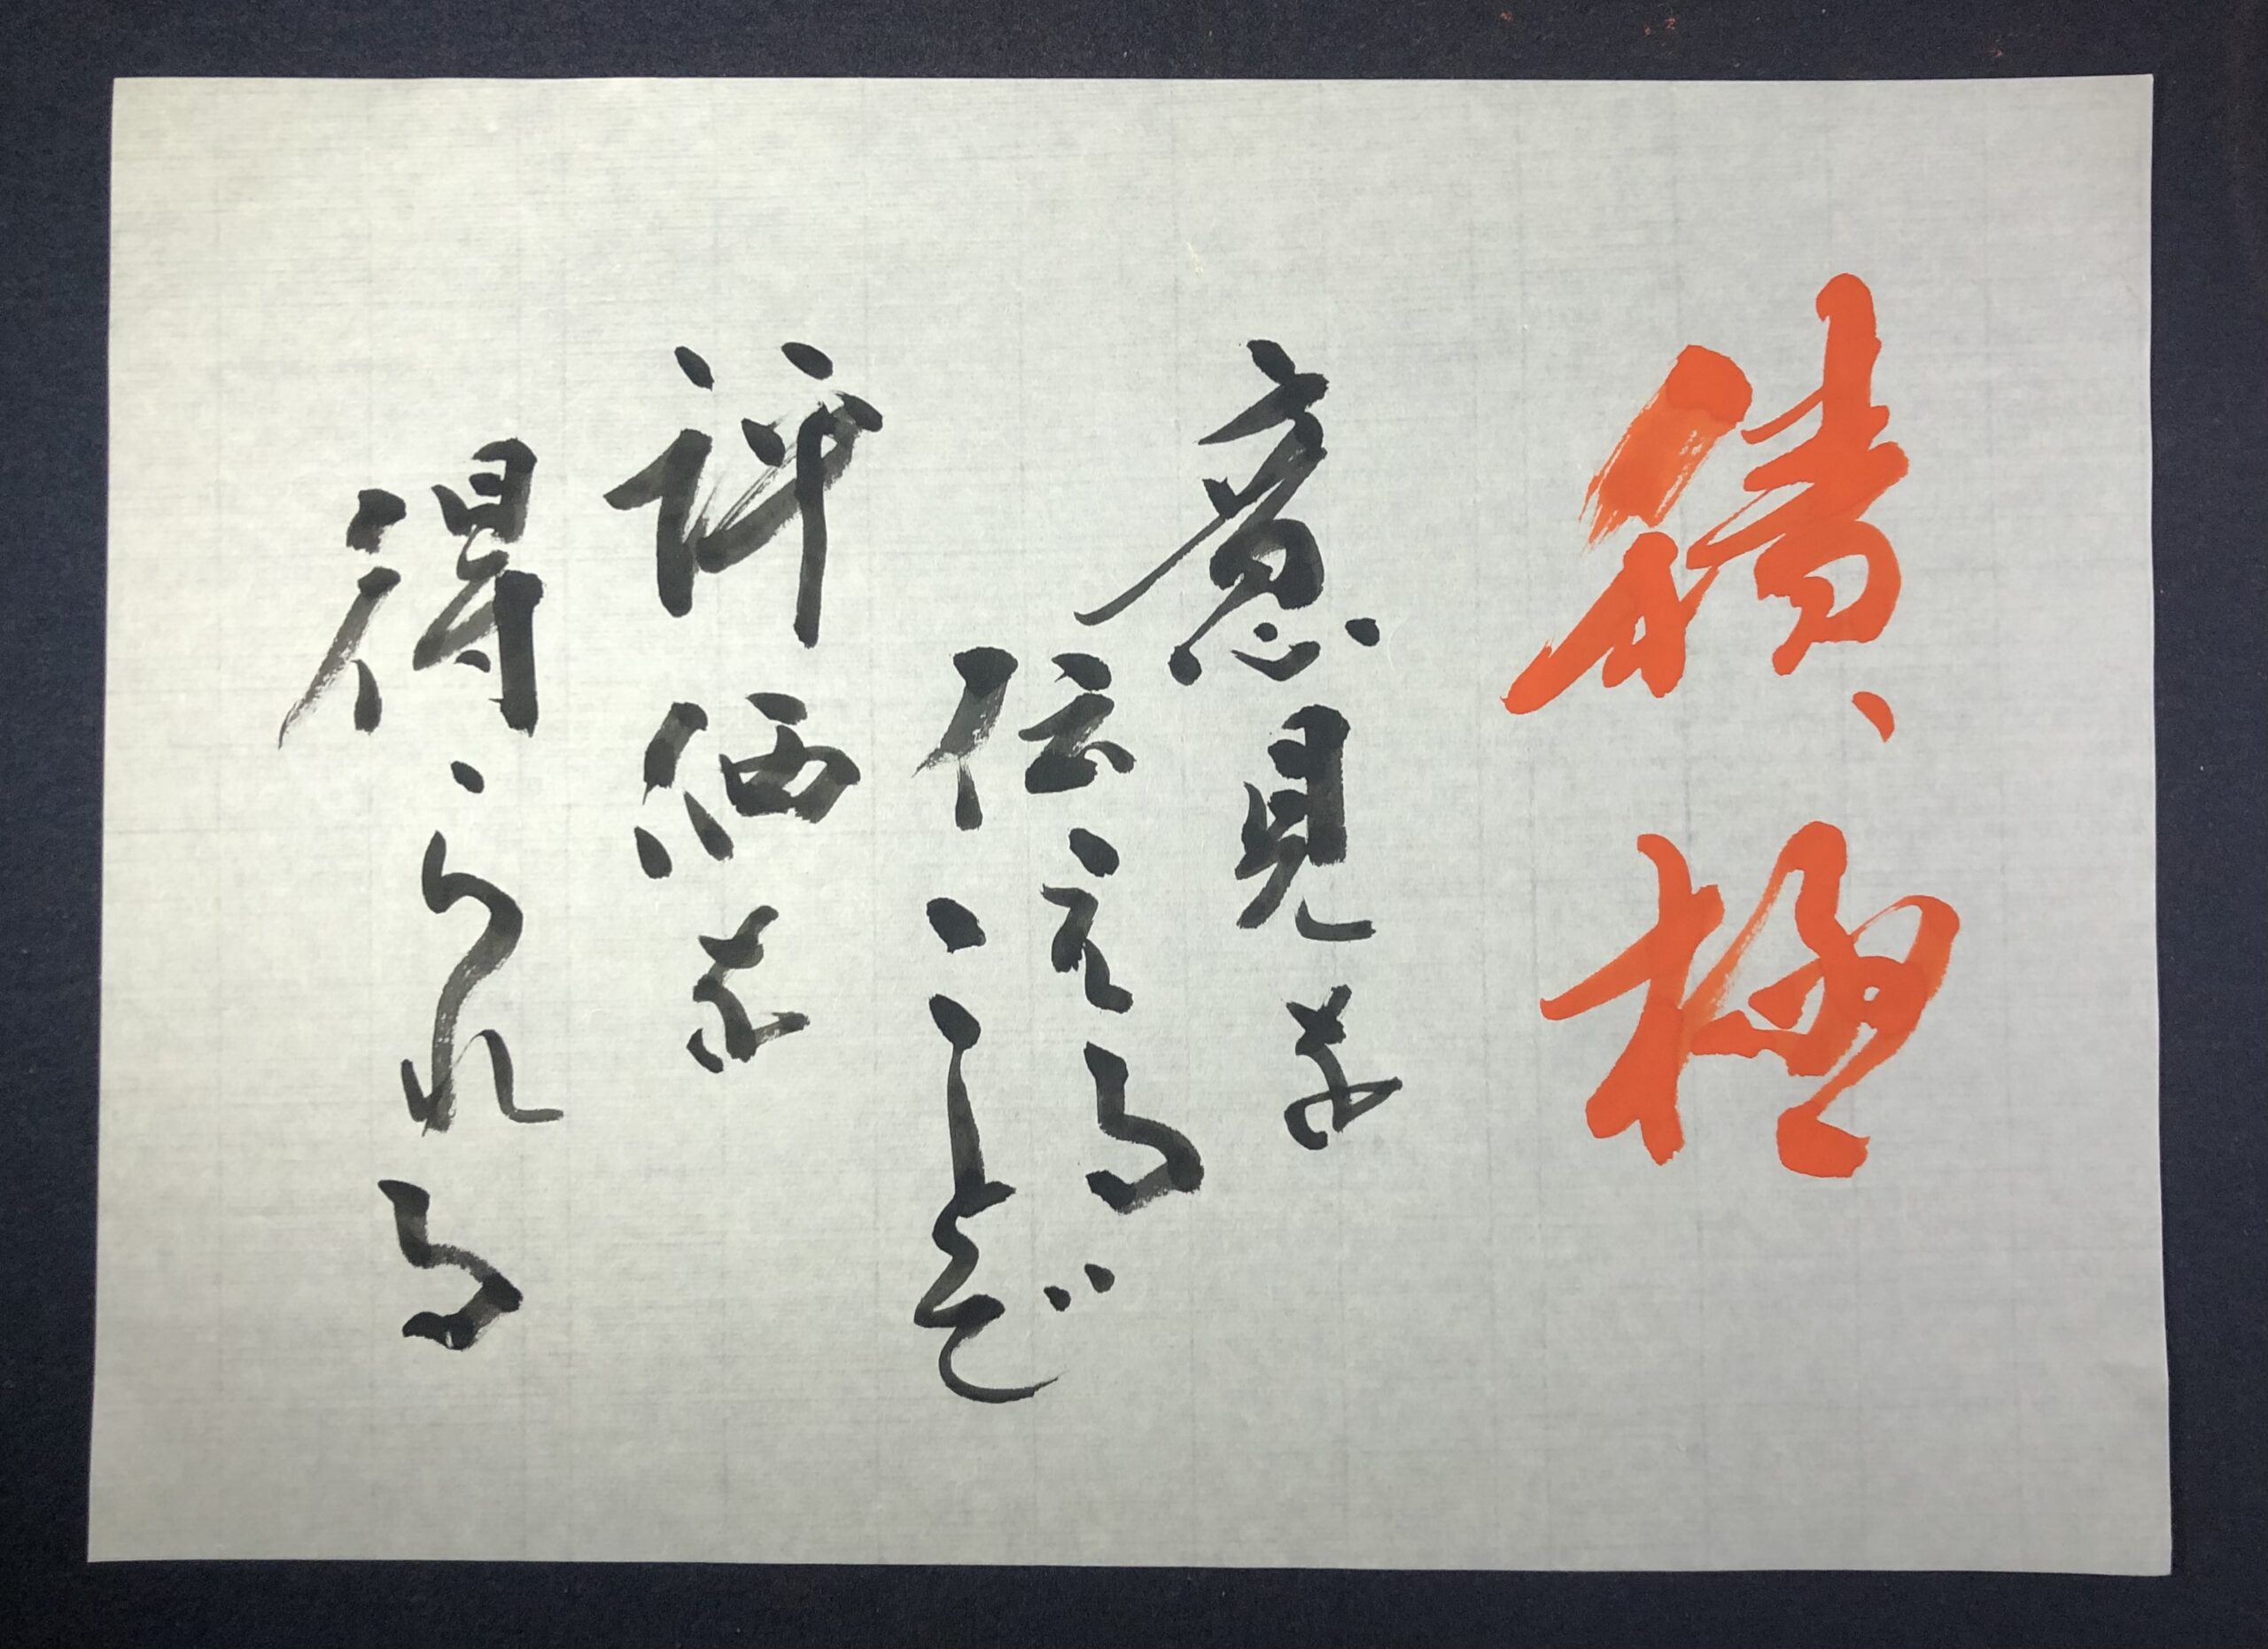 積極
意見を
伝える
ことで
評価が
得られる